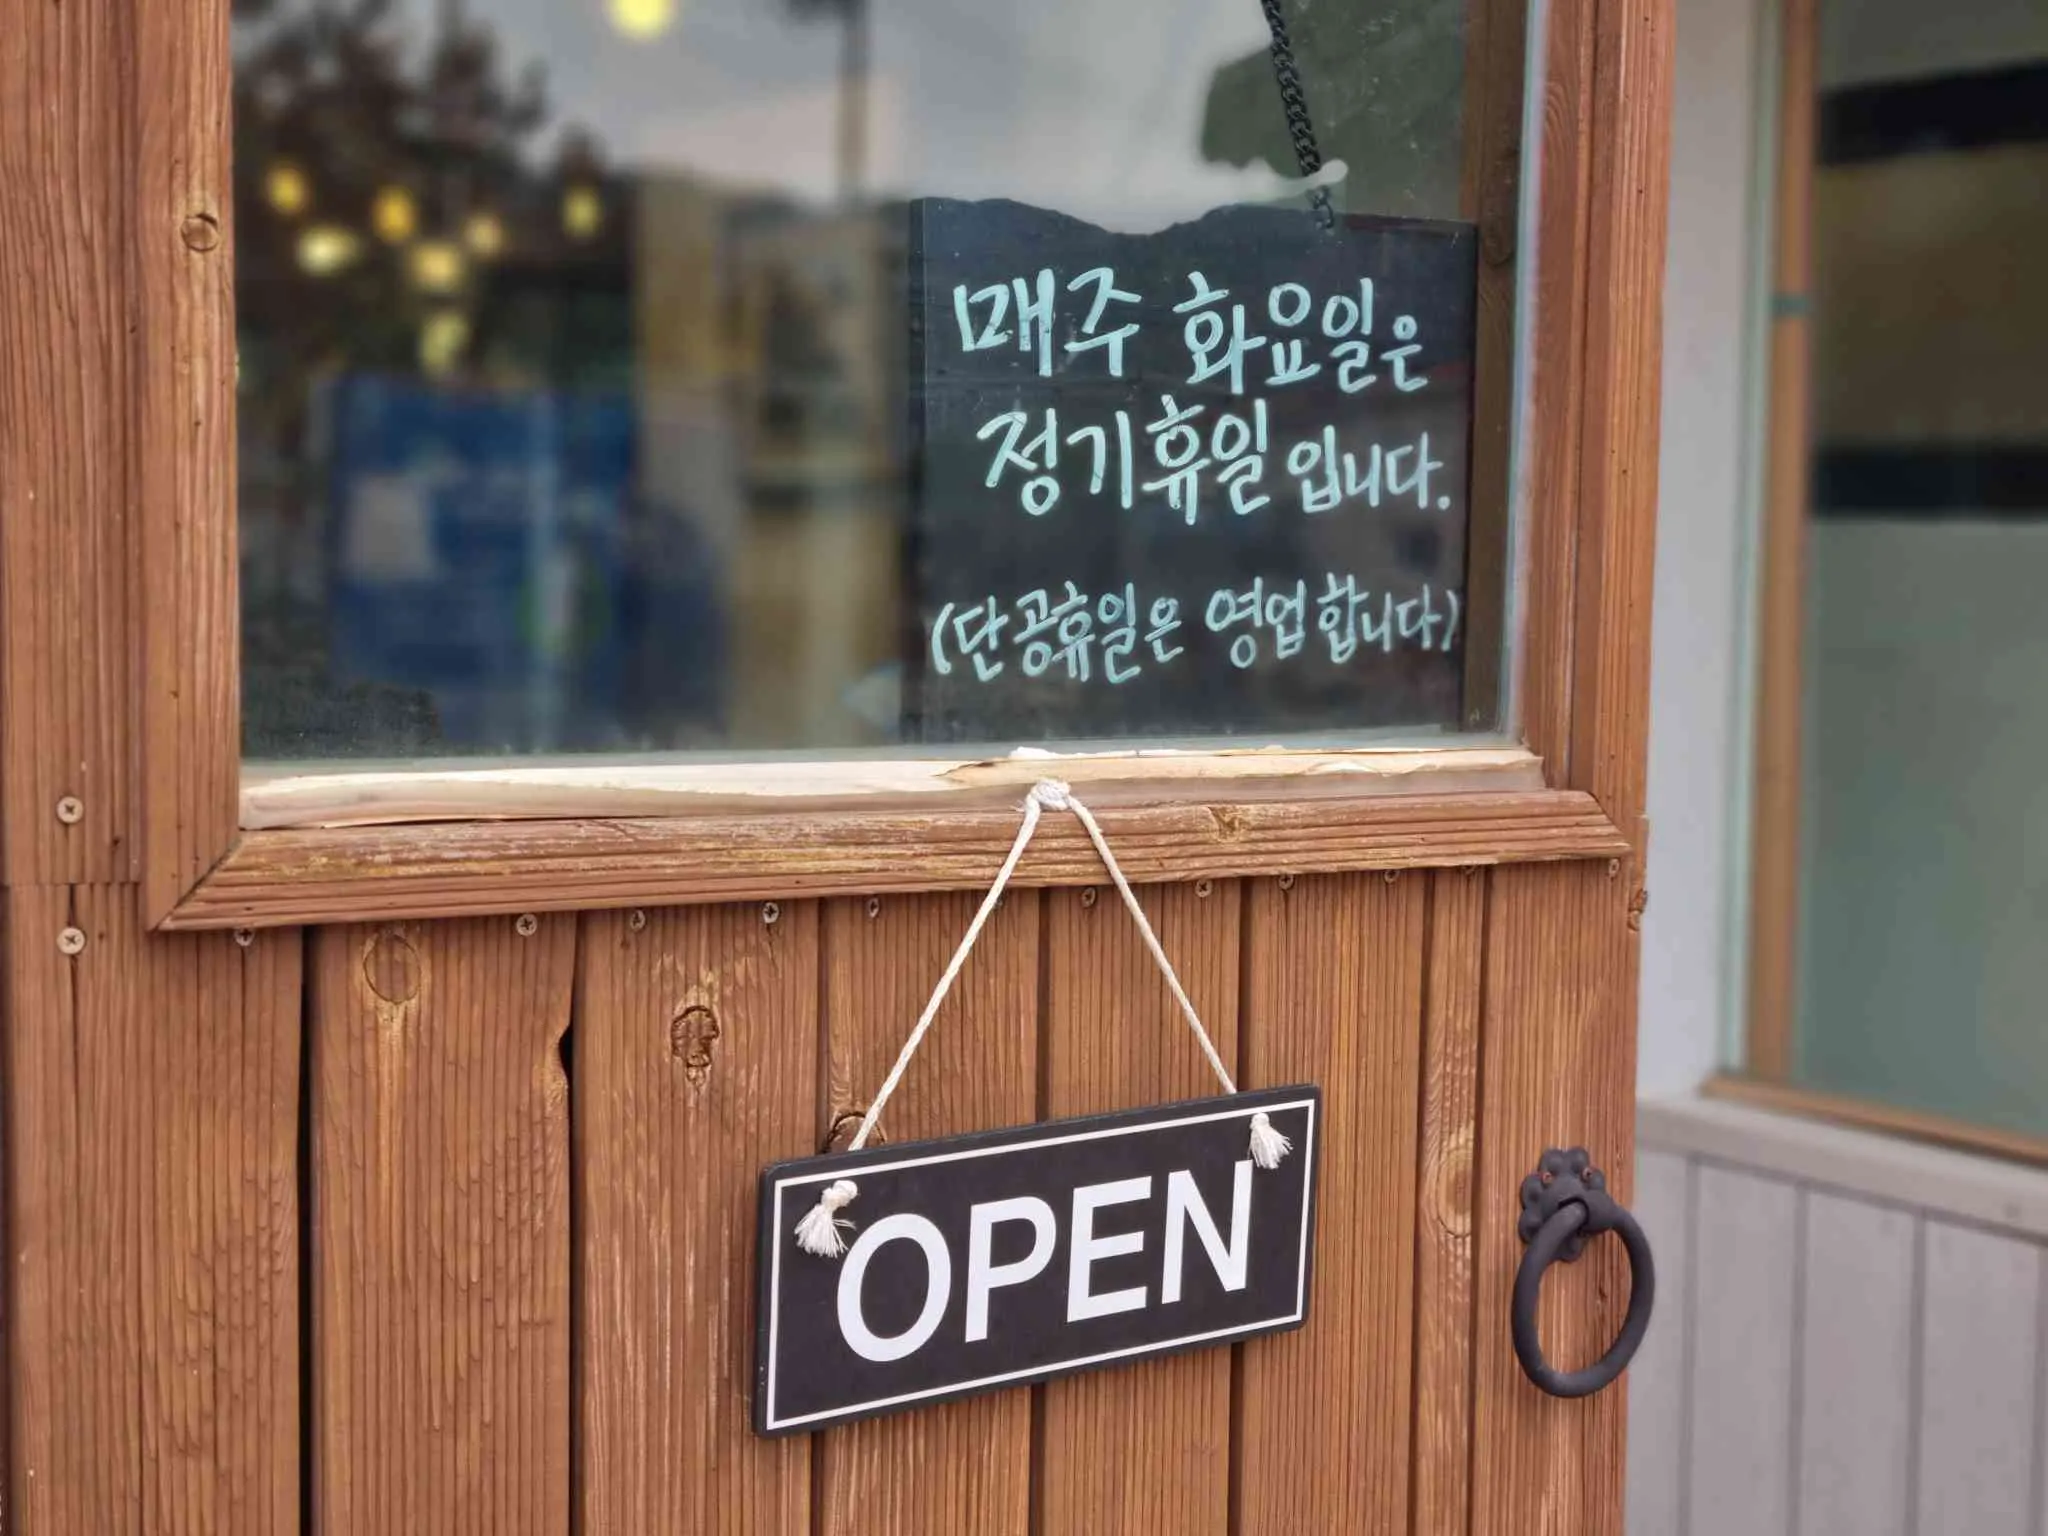 매주 화요일은
정기휴일 입니다.
(단 공휴일은 영업합니다)
OPEN